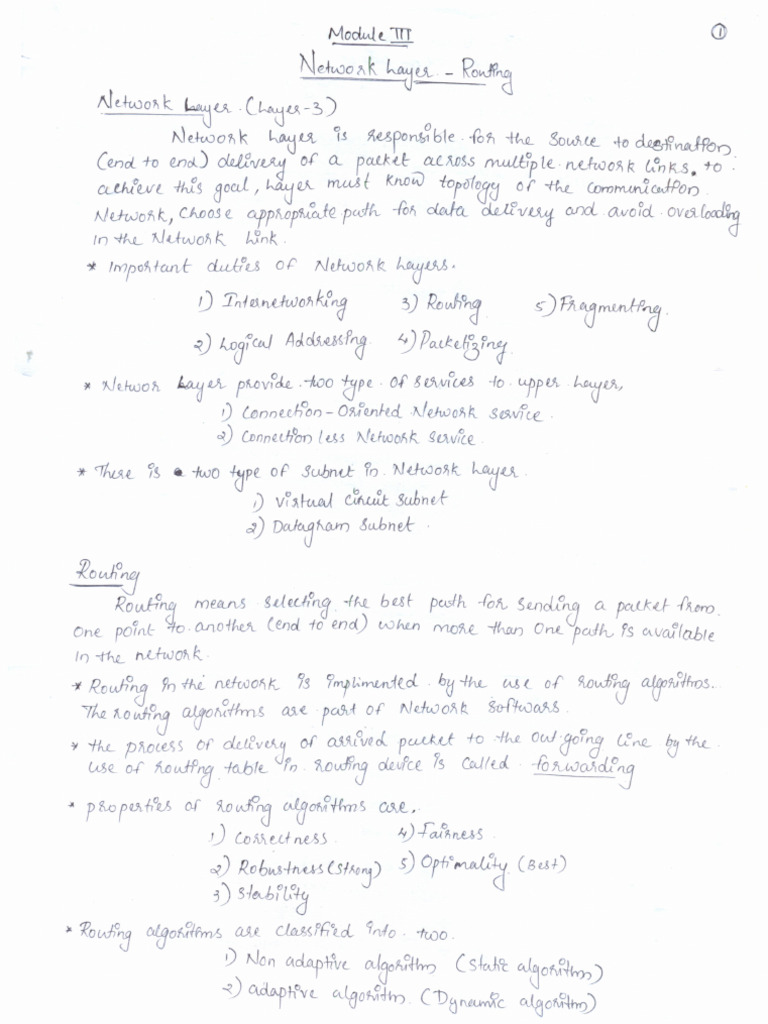 Module III
1
Network Layer - Routing
Network Layer (Layer-3)
Network Layer is responsible for the source to destination
(end to end) delivery of a packet across multiple network links. to
achieve this goal, Layer must know topology of the communication
Network, choose appropriate path for data delivery and avoid overloading
in the Network Link.
* Important duties of Network Layers.
1) Internetworking 3) Routing 5) Fragmenting.
2) Logical Addressing. 4) Packetizing.
* Networ Layer provide two type of services to upper Layer,
1) Connection-Oriented Network service.
2) Connection less Network service.
* There is two type of subnet in Network Layer.
1) Virtual Circuit subnet
2) Datagram Subnet.
Routing
Routing means selecting the best path for sending a packet from
one point to another (end to end) when more than one path is available
in the network.
* Routing in the network is implimented by the use of routing algorithms.
The routing algorithms are part of Network softwars.
* the process of delivery of arrived packet to the out going line by the
use of routing table in routing device is called forwarding
* properties of routing algorithms are,
1) Correctness 4) Fairness
2) Robustness (Strong) 5) Optimality (Best)
3) Stability
* Routing algorithms are classified into two.
1) Non adaptive algorithm (Static algorithm)
2) adaptive algorithm. (Dynamic algorithm)